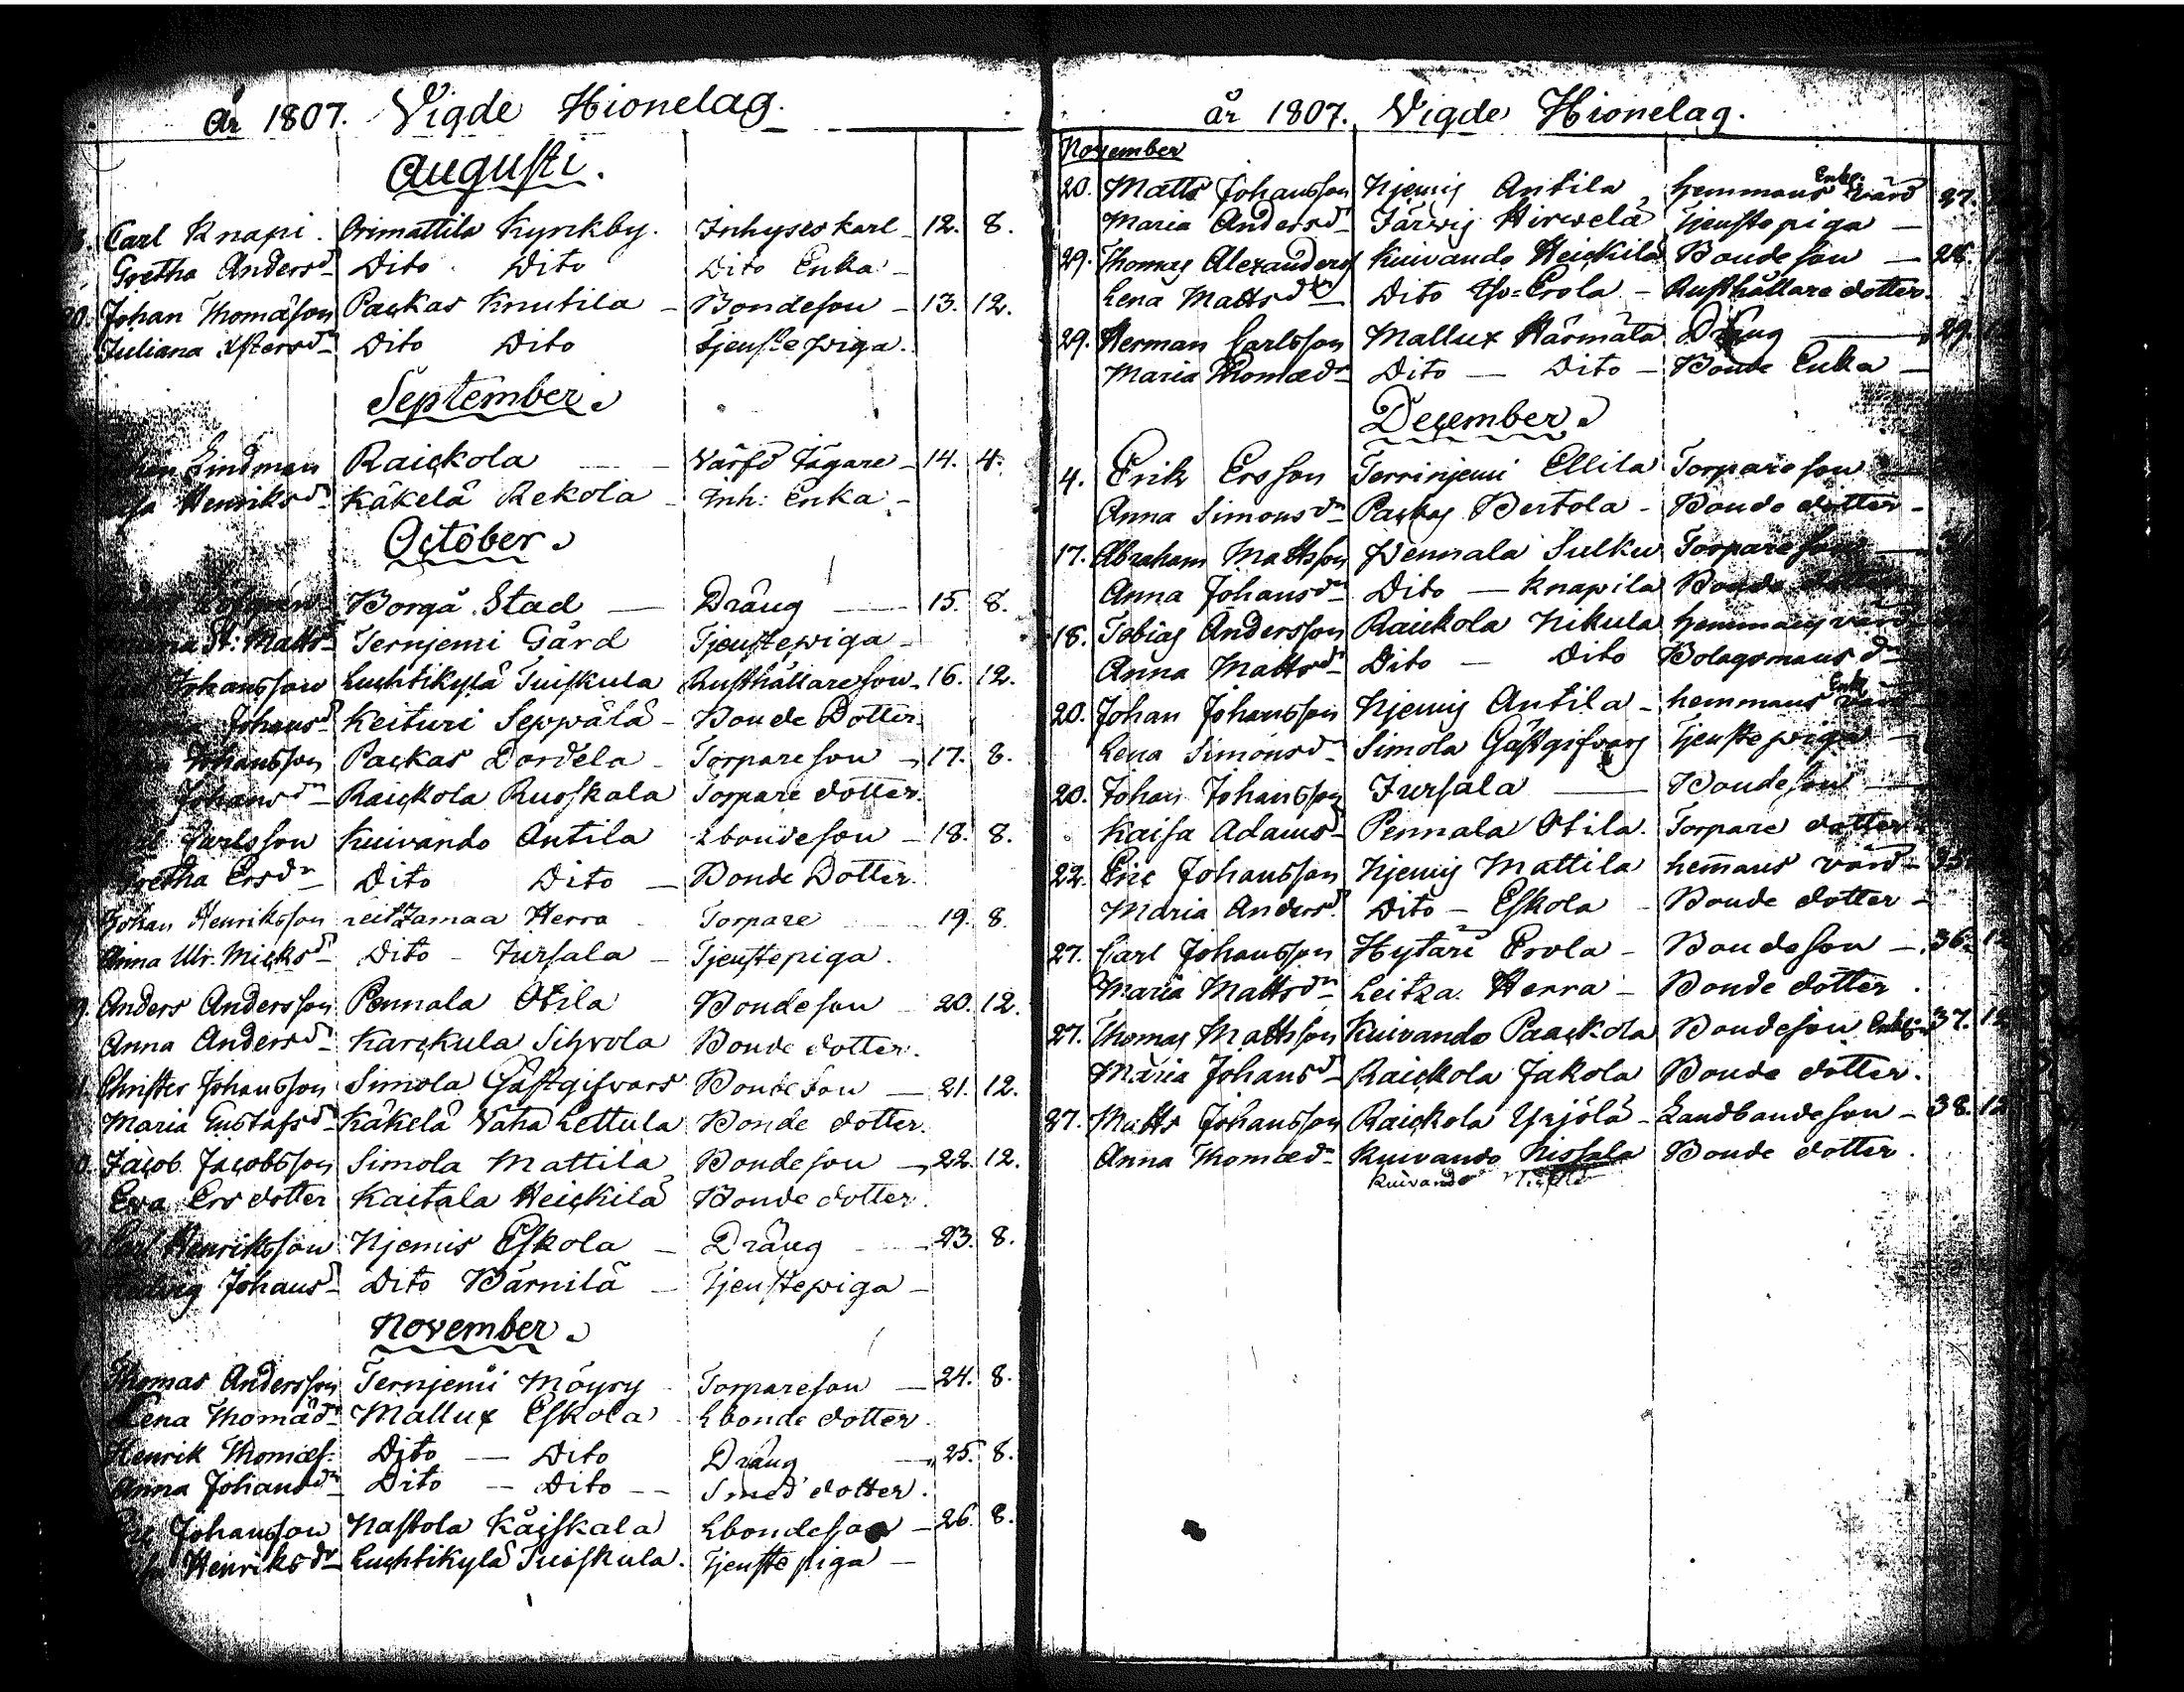 År 1807. Vigde Hionelag.
Augusti.
Carl Knapi. Orimattila Kynkby. Inhyses karl 12. 8.
Gretha Andersdr Dito Dito Dito Enka
20. Johan Thomasson Packas Knutila Bondeson 13. 12.
Juliana Dito Dito Tjenstepiga.
September
Lindman Raickola Värfd Jägare 14. 4.
Henriksdr Käkelä Rekola Inh: Enka
October
Borgå Stad Dräng 15. 8.
St: Matts Ternjemi Gård Tjenstepiga
Johansson Luchtikylä Tuiskula Rusthållareson 16. 12.
Johansdr Keituri Seppälä Bonde Dotter
Johansson Packas Dordela Torpareson 17. 8.
Johansdr Raickola Ruoskala Torpare dotter.
Carlsson Kuivando Antila Lbondeson 18. 8.
Gretha Ersdr Dito Dito Bonde Dotter.
Johan Henriksson Herra Torpare 19. 8.
Anna Ulr. Micksdr Dito Jursala Tjenstepiga.
Anders Andersson Pennala Otila Bondeson 20. 12.
Anna Andersdr Karckula Sihvola Bonde dotter.
Christer Johansson Simola Gästgifvars Bondeson 21. 12.
Maria Gustafsdr Käkelä Vähä Lettula Bonde dotter.
Jacob Jacobsson Simola Mattila Bondeson 22. 12.
Eva Ers dotter Kaitala Heickilä Bonde dotter.
Carl Henriksson Njemis Eskola Dräng 23. 8.
Hedvig Johansdr Dito Bärnilä Tjenstepiga
November
Thomas Andersson Ternjemi Möyry Torpareson 24. 8.
Lena Thomædr Mallux Eskola Lbonde dotter.
Henrik Thomæs. Dito Dito Dräng 25. 8.
Anna Johansdr Dito Dito Smed dotter.
Johansson Nastola Käiskala Lbondeson 26. 8.
Henriksdr Luchtikylä Tuiskula. Tjenstepiga
år 1807. Vigde Hionelag.
November
20. Matts Johansson Njemis Antila hemmans Enkl. värd 27.
Maria Andersdr Järvis Hirvelä Tjenstepiga
29. Thomas Alexanders Kuivando Heickilä Bondeson 28.
Lena Mattsdr Dito Yso-Erola Rusthållare dotter.
29. Herman Carlsson Mallux Härmälä Dräng 29.
Maria Thomædr Dito Dito Bonde Enka
December
4. Erik Ersson Terrinjemi Ellila Torpareson
Anna Simonsdr Packas Bertola Bonde dotter
17. Abraham Mattsson Pennala Sulku Torpareson
Anna Johansdr Dito Knapila Bonde dotter
18. Tobias Andersson Raickola Nikula hemmans värd
Anna Mattsdr Dito Dito Bolagsmans dr
20. Johan Johansson Njemis Antila hemmans Enkl. värd
Lena Simonsdr Simola Gästgifvars Tjenstepiga
20. Johan Johansson Jursala Bondeson
Kaisa Adamsdr Pennala Otila. Torpare dotter
22. Eric Johansson Njemis Mattila hem̄ans värd 35.
Maria Andersdr Dito Eskola Bonde dotter
27. Carl Johansson Hytäri Erola Bondeson 36. 12
Maria Mattsdr Leitza. Herra Bonde dotter.
27. Thomas Mattsson Kuivando Paackola Bondeson 37. 12
Maria Johansdr Raickola Jakola Bonde dotter.
27. Matts Johansson Raickola Yrjölä Landbondeson 38. 12
Anna Thomædr Kuivando Nissala Bonde dotter.
Kuivando